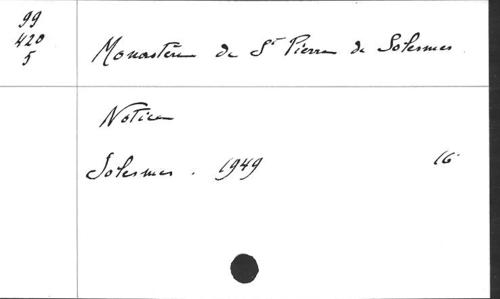 99
420
5
Monastère de St Pierre de Solesmes
Notice
Solesmes. 1949 16°